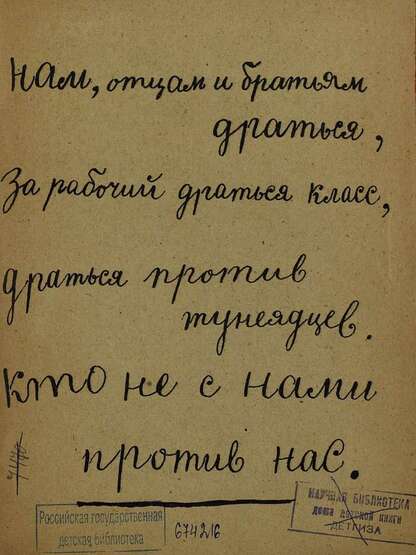 нам, отцам и братьям
драться,
За рабочий драться класс,
драться против
тунеядцев.
кто не с нами
против нас.
Российская государственная
детская библиотека
674216
НАУЧНАЯ БИБЛИОТЕКА
дома детской книги
ДЕТГИЗА